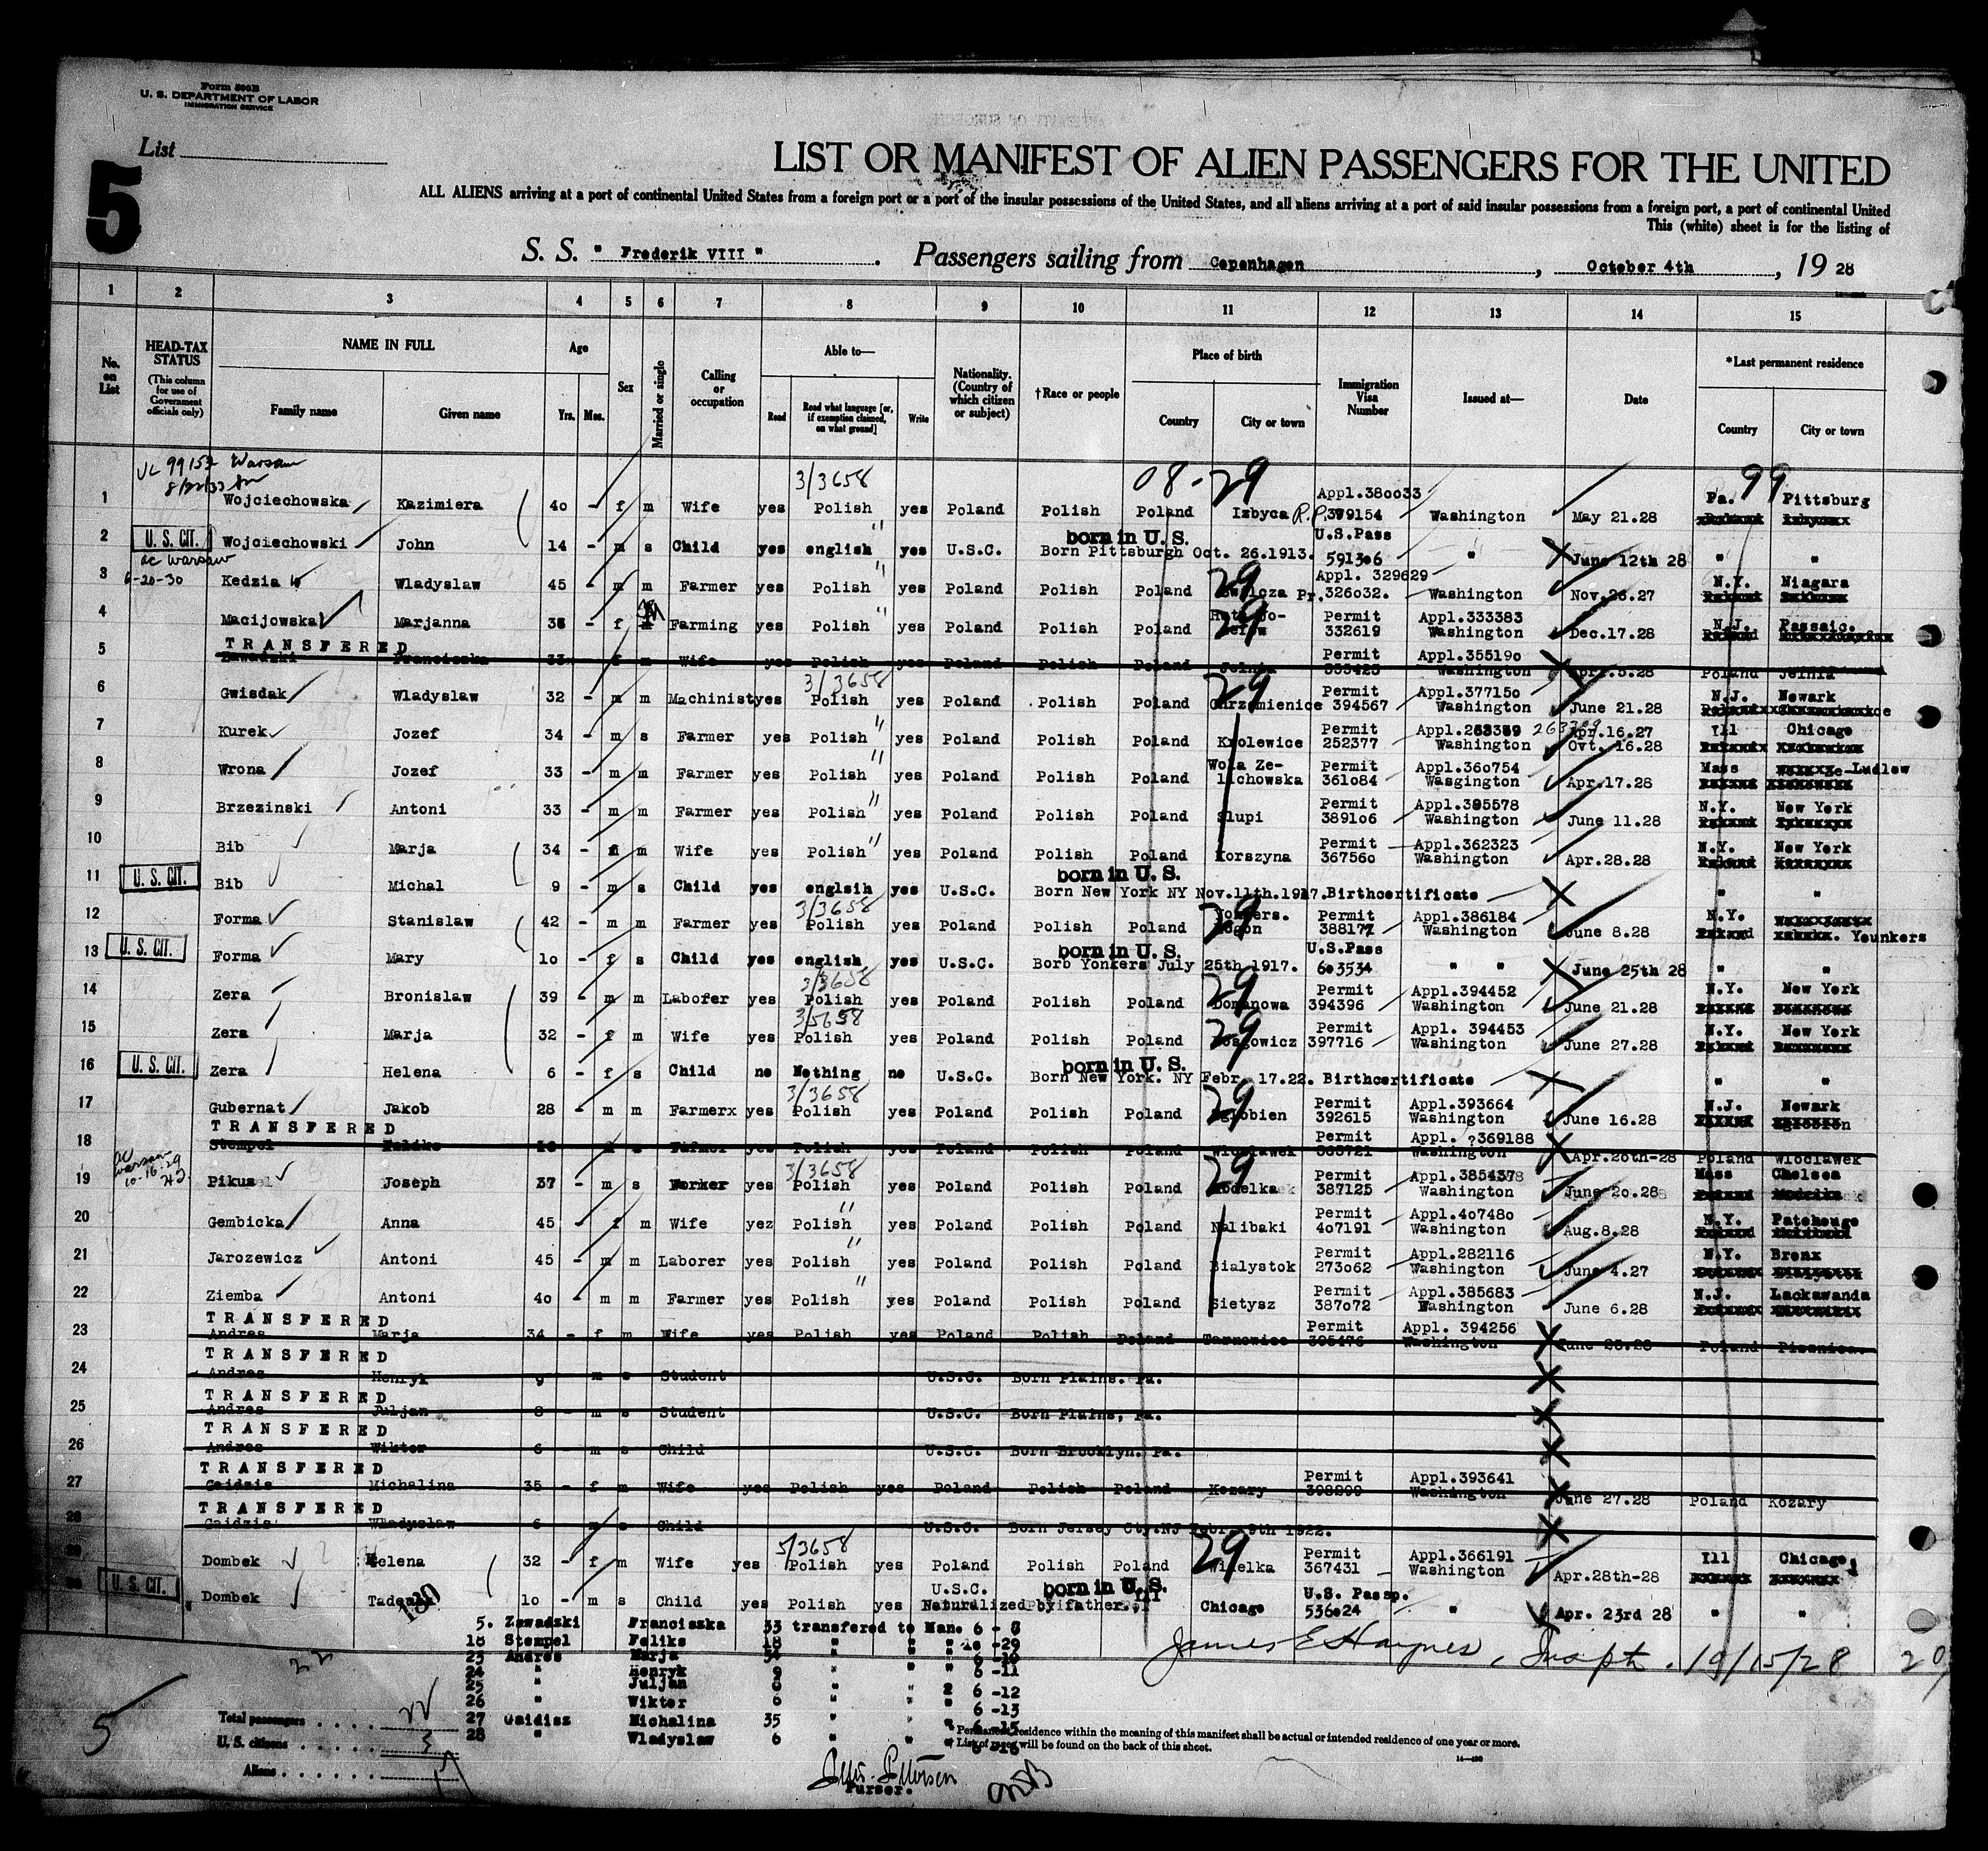 Form 500B
U. S. DEPARTMENT OF LABOR
IMMIGRATION SERVICE
List
5
LIST OR MANIFEST OF ALIEN PASSENGERS FOR THE UNITED
ALL ALIENS arriving at a port of continental United States from a foreign port or a port of the insular possessions of the United States, and all aliens arriving at a port of said insular possessions from a foreign port, a port of continental United
This (white) sheet is for the listing of
S. S. " Frederik VIII " . Passengers sailing from Copenhagen , October 4th , 19 28
1 2 3 4 5 6 7 8 9 10 11 12 13 14 15
No. on List
HEAD-TAX STATUS (This column for use of Government officials only)
NAME IN FULL Family name Given name
Age Yrs. Mos.
Sex
Married or single
Calling or occupation
Able to— Read Read what language [or, if exemption claimed, on what ground] Write
Nationality. (Country of which citizen or subject)
†Race or people
Place of birth Country City or town
Immigration Visa Number
Issued at—
Date
*Last permanent residence Country City or town
99152 Warsaw 3/3658 08-29 99
8/22/33 Appl.380033
1 Wojciechowska Kazimiera 40 - f m Wife yes Polish yes Poland Polish Poland Izbyca R.P. 379154 Washington May 21.28 Pa. Pittsburg
born in U. S. U.S.Pass
2 U. S. CIT. Wojciechowski John 14 - m s Child yes english " yes U.S.C. Born Pittsburgh Oct. 26.1913. 591306 " June 12th 28 " "
Warsaw Appl. 329629
3 6-20-30 Kedzia Wladyslaw 45 - m m Farmer yes Polish " yes Poland Polish Poland 29 Pr. 326032. Washington Nov.26.27 N.Y. Niagara
4 Macijowska Marjanna - f M Farming yes Polish " yes Poland Polish Poland 29 Permit 332619 Appl.333383 Washington Dec.17.28 N.J. Passaic.
TRANSFERED
5 Zawadzki Franciszka 33 f m Wife yes Polish yes Poland Polish Poland Permit Appl.355190 Washington Apr.5.28 Poland
3/3658
6 Gwisdak Wladyslaw 32 - m m Machinist yes Polish yes Poland Polish Poland 29 Permit 394567 Appl.377150 Washington June 21.28 N.J. Newark
7 Kurek Jozef 34 - m s Farmer yes Polish " yes Poland Polish Poland Krolewice Permit 252377 Washington Apr.16.27 Oct. 16.28 Ill Chicago
8 Wrona Jozef 33 - m m Farmer yes Polish " yes Poland Polish Poland Wola Ze-lichowska Permit 361084 Appl.360754 Wasgington Apr.17.28 Mass Ludlow
9 Brzezinski Antoni 33 - m m Farmer yes Polish " yes Poland Polish Poland Slupi Permit 389106 Appl.385578 Washington June 11.28 N.Y. New York
10 Bib Marja 34 - f m Wife yes Polish " yes Poland Polish Poland Korszyna Permit 367560 Appl.362323 Washington Apr.28.28 N.Y. New York
born in U. S.
11 U. S. CIT. Bib Michal 9 - m s Child yes englsih yes U.S.C. Born New York NY Nov.11th.1917. Birthcertificate " "
3/3658
12 Forma Stanislaw 42 - m m Farmer yes Polish yes Poland Polish Poland 29 Permit 388177 Appl.386184 Washington June 8.28 N.Y. Younkers
born in U. S. U.S.Pass
13 U. S. CIT. Forma Mary 10 - f s Child yes english yes U.S.C. Borb Yonkers July 25th 1917. 603534 " " June 25th 28 " "
3/3658
14 Zera Bronislaw 39 - m m Laborer yes Polish yes Poland Polish Poland 29 Domanowa Permit 394396 Appl.394452 Washington June 21.28 N.Y. New York
3/5658
15 Zera Marja 32 - f m Wife yes Polish yes Poland Polish Poland 29 Permit 397716 Appl. 394453 Washington June 27.28 N.Y. New York
born in U. S.
16 U. S. CIT. Zera Helena 6 - f s Child no Nothing no U.S.C. Born New York. NY Febr. 17.22. Birthcertificate " "
3/3658
17 Gubernat Jakob 28 - m m Farmerx yes Polish yes Poland Polish Poland 29 Permit 392615 Appl.393664 Washington June 16.28 N.J. Newark
TRANSFERED
18 Stempel Feliks yes Polish yes Poland Polish Poland Wloclawek Permit Appl. ?369188 Washington Apr.20th-28 Poland Wloclawek
Warsaw 10-16-29 3/3658
19 Pikus Joseph 37 - m s Worker yes Polish yes Poland Polish Poland 29 Permit 387125 Appl.385437 Washington June 20.28 Mass Chelsea
20 Gembicka Anna 45 - f m Wife yez Polish " yes Poland Polish Poland Nalibaki Permit 407191 Appl.407480 Washington Aug.8.28 N.Y. Patchouge
21 Jarozewicz Antoni 45 - m m Laborer yes Polish " yes Poland Polish Poland Bialystok Permit 273062 Appl.282116 Washington June 4.27 N.Y. Bronx
22 Ziemba Antoni 40 - m m Farmer yes Polish " yes Poland Polish Poland Sietysz Permit 387072 Appl.385683 Washington June 6.28 N.J. Lackawanda
TRANSFERED
23 Andres Marja 34 - f m Wife yes Polish yes Poland Polish Poland Tarnowiec Permit 395476 Appl. 394256 Washington June 25.28 Poland
TRANSFERED
24 Andres Henryk 9 m s Student U.S.C. Born Plains. Pa.
TRANSFERED
25 Andres Juljan 8 - m s Student U.S.C. Born Plains, Pa.
TRANSFERED
26 Andres Wiktor 6 - m s Child U.S.C. Born Brooklyn. Pa.
TRANSFERED
27 Gaidzis Michalina 35 - f m Wife yes Polish yes Poland Polish Poland Kozary Permit Appl.393641 Washington June 27.28 Poland Kozary
TRANSFERED
28 Gaidzis Wladyslaw 6 m s Child U.S.C. Born Jersey Cty.NJ Febr. 9th 1922.
5/3658
29 Dombek Helena 32 - f m Wife yes Polish yes Poland Polish Poland 29 Permit 367431 Appl.366191 Washington Apr.28th-28 Ill Chicago
born in U. S. U.S. Passp.
30 U. S. CIT. Dombek 10 - m s Child yes Polish yes U.S.C. Naturalized by father. Chicago 536024 " Apr. 23rd 28 " "
180
5. Zawadzki Franciszka 33 transfered to Man. 6 - 8
18 Stempel Feliks 18 " " " 10 -29
23 Andres Marja 34 " " " 6 -10
24 " Henryk 9 " " " 6 -11
25 " Juljan 8 " " 6 -12
26 " Wiktor 6 " " " 6 -13
27 Gaidisz Michalina 35 " " " 6 -15
28 " Wladyslaw 6 " "
James E Haynes, Inspt. 10/15/28
22
5
Total passengers
U. S. citizens 3
Aliens
* Permanent residence within the meaning of this manifest shall be actual or intended residence of one year or more.
† List of races will be found on the back of this sheet.
Purser.